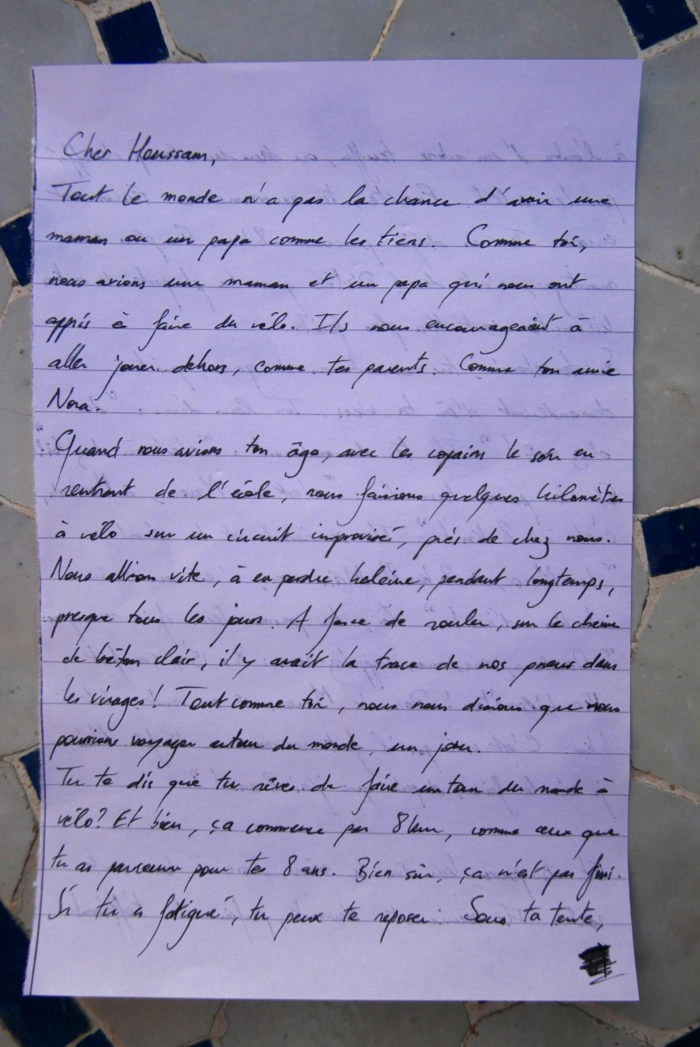 Cher Houssam,
Tout le monde n'a pas la chance d'avoir une
maman ou un papa comme les tiens. Comme toi,
nous avions une maman et un papa qui nous ont
appris à faire du vélo. Ils nous encourageaient à
aller jouer dehors, comme tes parents. Comme ton amie
Nora.
Quand nous avions ton âge, avec les copains le soir en
rentrant de l'école, nous faisions quelques kilomètres
à vélo sur un circuit improvisé, près de chez nous.
Nous allions vite, à en perdre haleine, pendant longtemps,
presque tous les jours. A force de rouler, sur le chemin
de béton clair, il y avait la trace de nos pneus dans
les virages! Tout comme toi, nous nous disions que nous
pourrions voyager autour du monde, un jour.
Tu te dis que tu rêves de faire un tour du monde à
vélo? Et bien, ça commence par 8 km, comme ceux que
tu as parcouru pour tes 8 ans. Bien sûr, ça n'est pas fini.
Si tu es fatigué, tu peux te reposer. Sous ta tente,